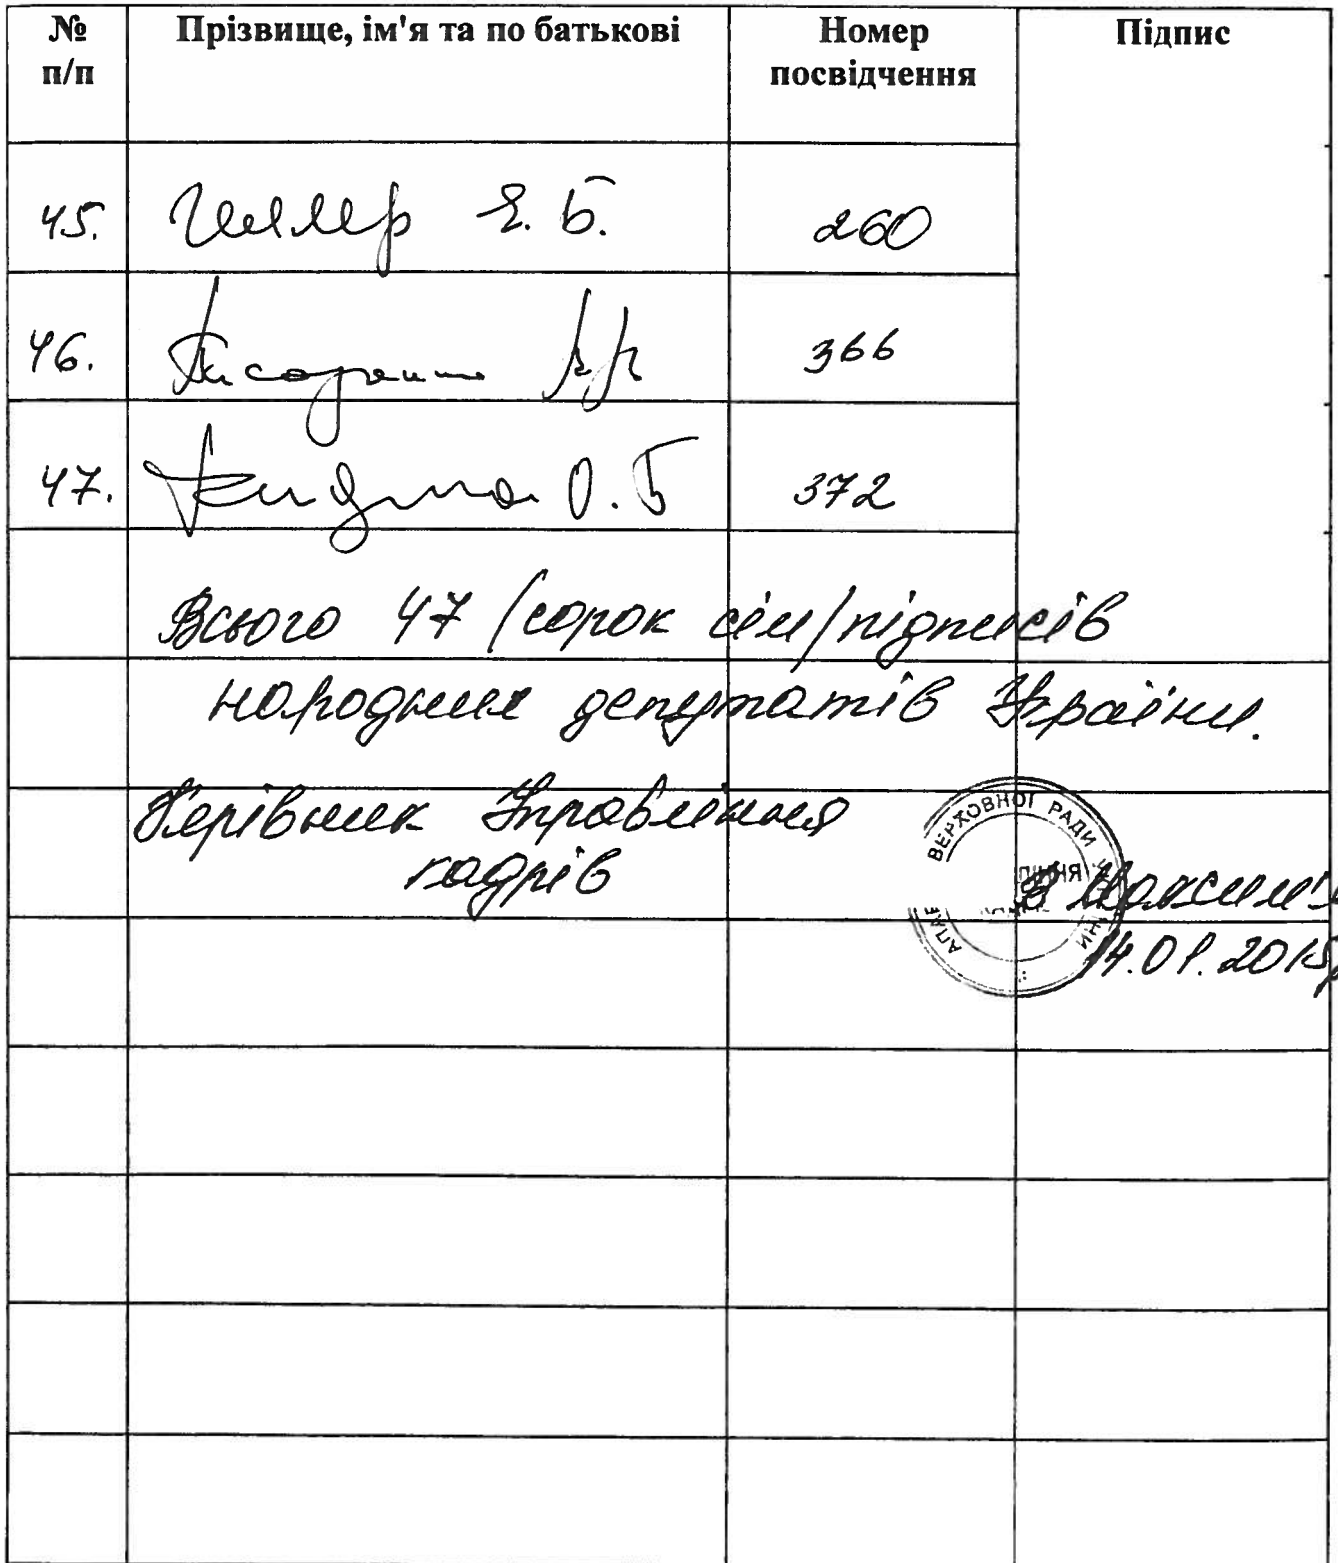 № п/п Прізвище, ім'я та по батькові Номер посвідчення Підпис
45. Геллер Є. Б. 260
46. 366
47. О. Б 372
Всього 47 /сорок сім/ підписів
народних депутатів України.
Керівник Управління
кадрів
ВЕРХОВНОЇ РАДИ
14.01.2015